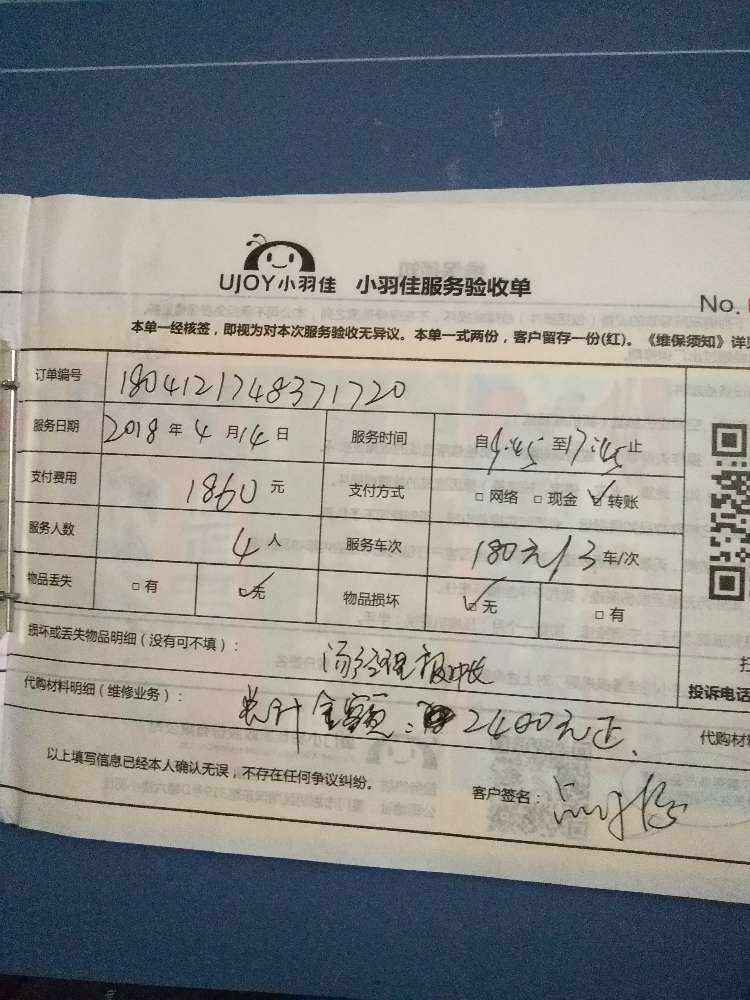 UJOY小羽佳 小羽佳服务验收单
No.
本单一经核签，即视为对本次服务验收无异议。本单一式两份，客户留存一份(红)。《维保须知》详
订单编号 1804121748371720
服务日期 2018 年 4 月 14 日 服务时间 自 9:45 至 17:45 止
支付费用 1860 元 支付方式 □ 网络 □ 现金 ☑ 转账
服务人数 4 人 服务车次 180元/3 车/次
物品丢失 □ 有 ☑ 无 物品损坏 ☑ 无 □ 有
损坏或丢失物品明细（没有可不填）： 汤经理
投诉电话
代购材料明细（维修业务）： 总计金额： 2400元正
代购材
以上填写信息已经本人确认无误，不存在任何争议纠纷。 客户签名：